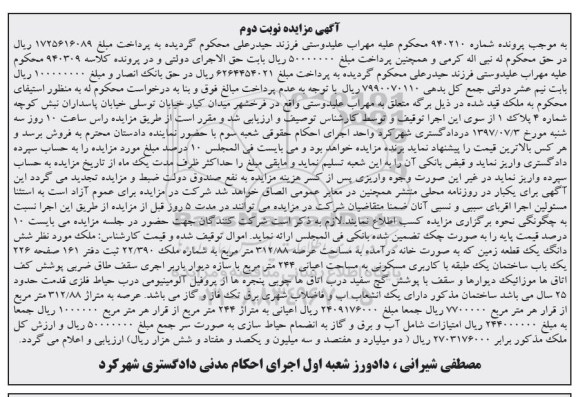 آگهی مزایده نوبت دوم
به موجب پرونده شماره ۹۴۰۲۱۰ محکوم علیه مهراب علیدوستی فرزند حیدرعلی محکوم گردیده به پرداخت مبلغ ۱۷۲۵۶۱۶۰۸۹ ریال
در حق محکوم له نبی اله کرمی و همچنین پرداخت مبلغ ۵۰۰۰۰۰۰۰ ریال بابت حق الاجرای دولتی و در پرونده کلاسه ۹۴۰۳۰۹ محکوم
علیه مهراب علیدوستی فرزند حیدرعلی محکوم گردیده به پرداخت مبلغ ۶۲۶۴۴۵۴۰۲۱ ریال در حق بانک انصار و مبلغ ۱۰۰۰۰۰۰۰۰ ریال
بابت نیم عشر دولتی جمع کل بدهی ۱۷۹۹۰۰۷۰۱۱۰ ریال با توجه به عدم پرداخت مبالغ فوق و بنا به درخواست محکوم له به منظور استیفای
محکوم به ملک قید شده در ذیل برگه متعلق به مهراب علیدوستی واقع در فرخشهر میدان کیار خیابان توسلی خیابان پاسداران نبش کوچه
شماره ۴ پلاک ۱ از سوی این اجرا توقیف و توسط کارشناس توصیف و ارزیابی شد و مقرر است از طریق مزایده راس ساعت ۱۰ روز سه
شنبه مورخ ۱۳۹۷/۰۷/۳ دردادگستری شهرکرد واحد اجرای احکام حقوقی شعبه سوم با حضور نماینده دادستان محترم به فروش برسد و
هر کس بالاترین قیمت را پیشنهاد نماید برنده مزایده خواهد بود و می بایست فی المجلس ۱۰ درصد مبلغ مورد مزایده را به حساب سپرده
دادگستری واریز نماید و قبض بانکی آن را به این شعبه تسلیم نماید و مابقی مبلغ را حداکثر ظرف مدت یک ماه از تاریخ مزایده به حساب
سپرده واریز نماید در غیر این صورت وجوه واریزی پس از کسر هزینه مزایده به نفع صندوق دولت ضبط و مزایده تجدید می گردد این
آگهی برای یکبار در روزنامه محلی منتشر همچنین در معابر عمومی الصاق خواهد شد شرکت در مزایده برای عموم آزاد است به استثنا
مسئولین اجرا اقربای سببی و نسبی آنان ضمنا متقاضیان شرکت در مزایده می توانند در مدت ۵ روز قبل از مزایده از طریق این اجرا نسبت
به چگونگی نحوه برگزاری مزایده کسب اطلاع نمایند.لازم به ذکر است شرکت کنندگان جهت حضور در جلسه مزایده می بایست ۱۰
درصد قیمت پایه را به صورت چک تضمین شده بانکی فی المجلس ارائه نمایند. اموال توقیف شده و قیمت کارشناس: ملک مورد نظر شش
دانگ یک قطعه زمین که به صورت خانه درآمده به مساحت عرصه ۳۱۲/۸۸ متر مربع به شماره ملک ۲۲/۳۹۰ ثبت دفتر ۱۶۱ صفحه ۲۲۶
یک باب ساختمان یک طبقه با کاربری مسکونی به مساحت اعیانی ۲۴۴ متر مربع با سازه دیوار باربر اجری سقف طاق ضربی پوشش کف
اتاق ها موزائیک دیوارها و سقف با پوشش گچ سفید درب اتاق ها چوبی پنجره ها از پروفیل آلومینیومی درب حیاط فلزی قدمت حدود
۲۵ سال می باشد ساختمان مذکور دارای یک انشعاب آب و فاضلاب شهری برق تک فاز و گاز می باشد. عرصه به متراژ ۳۱۲/۸۸ متر مربع
از قرار هر متر مربع ۷۷۰۰۰۰۰ ریال جمعا مبلغ ۲۴۰۹۱۷۶۰۰۰ ریال اعیانی به متراژ ۲۴۴ متر مربع از قرار هر متر مربع ۱۰۰۰۰۰۰ ریال جمعا
به مبلغ ۲۴۴۰۰۰۰۰۰ ریال امتیازات شامل آب و برق و گاز به انضمام حیاط سازی به صورت سر جمع مبلغ ۵۰۰۰۰۰۰۰ ریال و ارزش کل
ملک مذکور برابر ۲۷۰۳۱۷۶۰۰۰ ریال ( دو میلیارد و هفتصد و سه میلیون و یکصد و هفتاد و شش هزار ریال) ارزیابی و اعلام می گردد.
مصطفی شیرانی ، دادورز شعبه اول اجرای احکام مدنی دادگستری شهرکرد